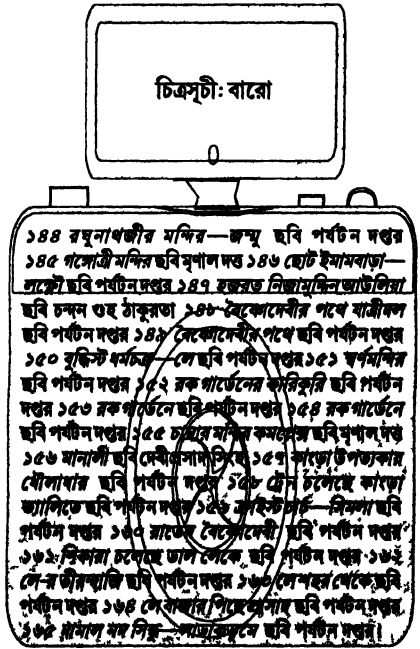 চিত্রসূচী: বারো
১৪৪ রঘুনাথজীর মন্দির—জম্মু ছবি পর্যটন দপ্তর
১৪৫ গঙ্গোত্রী মন্দির ছবি মৃণাল দত্ত ১৪৬ ছোট ইমামবাড়া—
লক্ষ্ণৌ ছবি পর্যটন দপ্তর ১৪৭ হজরত নিজামুদ্দিন আউলিয়া
ছবি চন্দন গুহ ঠাকুরতা ১৪৮ বৈষ্ণোদেবীর পথে যাত্রীদল
ছবি পর্যটন দপ্তর ১৪৯ বৈষ্ণোদেবীর পথে ছবি পর্যটন দপ্তর
১৫০ বুদ্ধিস্ট ধর্মচক্র—লে ছবি পর্যটন দপ্তর ১৫১ স্বর্ণমন্দির
ছবি পর্যটন দপ্তর ১৫২ রক গার্ডেনের কারিকুরি ছবি পর্যটন
দপ্তর ১৫৩ রক গার্ডেনে ছবি পর্যটন দপ্তর ১৫৪ রক গার্ডেনে
ছবি পর্যটন দপ্তর ১৫৫ চাম্বার মন্দির কমপ্লেক্স ছবি মৃণাল দত্ত
১৫৬ মানালী ছবি দেবীপ্রসাদ সিংহ ১৫৭ কাংড়া উপত্যকায়
ধৌলাধার ছবি পর্যটন দপ্তর ১৫৮ ট্রেন চলেছে কাংড়া
ভ্যালিতে ছবি পর্যটন দপ্তর ১৫৯ ক্রাইস্ট চার্চ—সিমলা ছবি
পর্যটন দপ্তর ১৬০ রাতের বৈষ্ণোদেবী ছবি পর্যটন দপ্তর
১৬১ শিকারা চলেছে ডাল লেকে ছবি পর্যটন দপ্তর ১৬২
লে-র তীরন্দাজি ছবি পর্যটন দপ্তর ১৬৩ লে শহর থেকে ছবি
পর্যটন দপ্তর ১৬৪ লে বাজার পিছে প্রাসাদ ছবি পর্যটন দপ্তর
১৬৫ সিন্ধু ছবি পর্যটন দপ্তর।